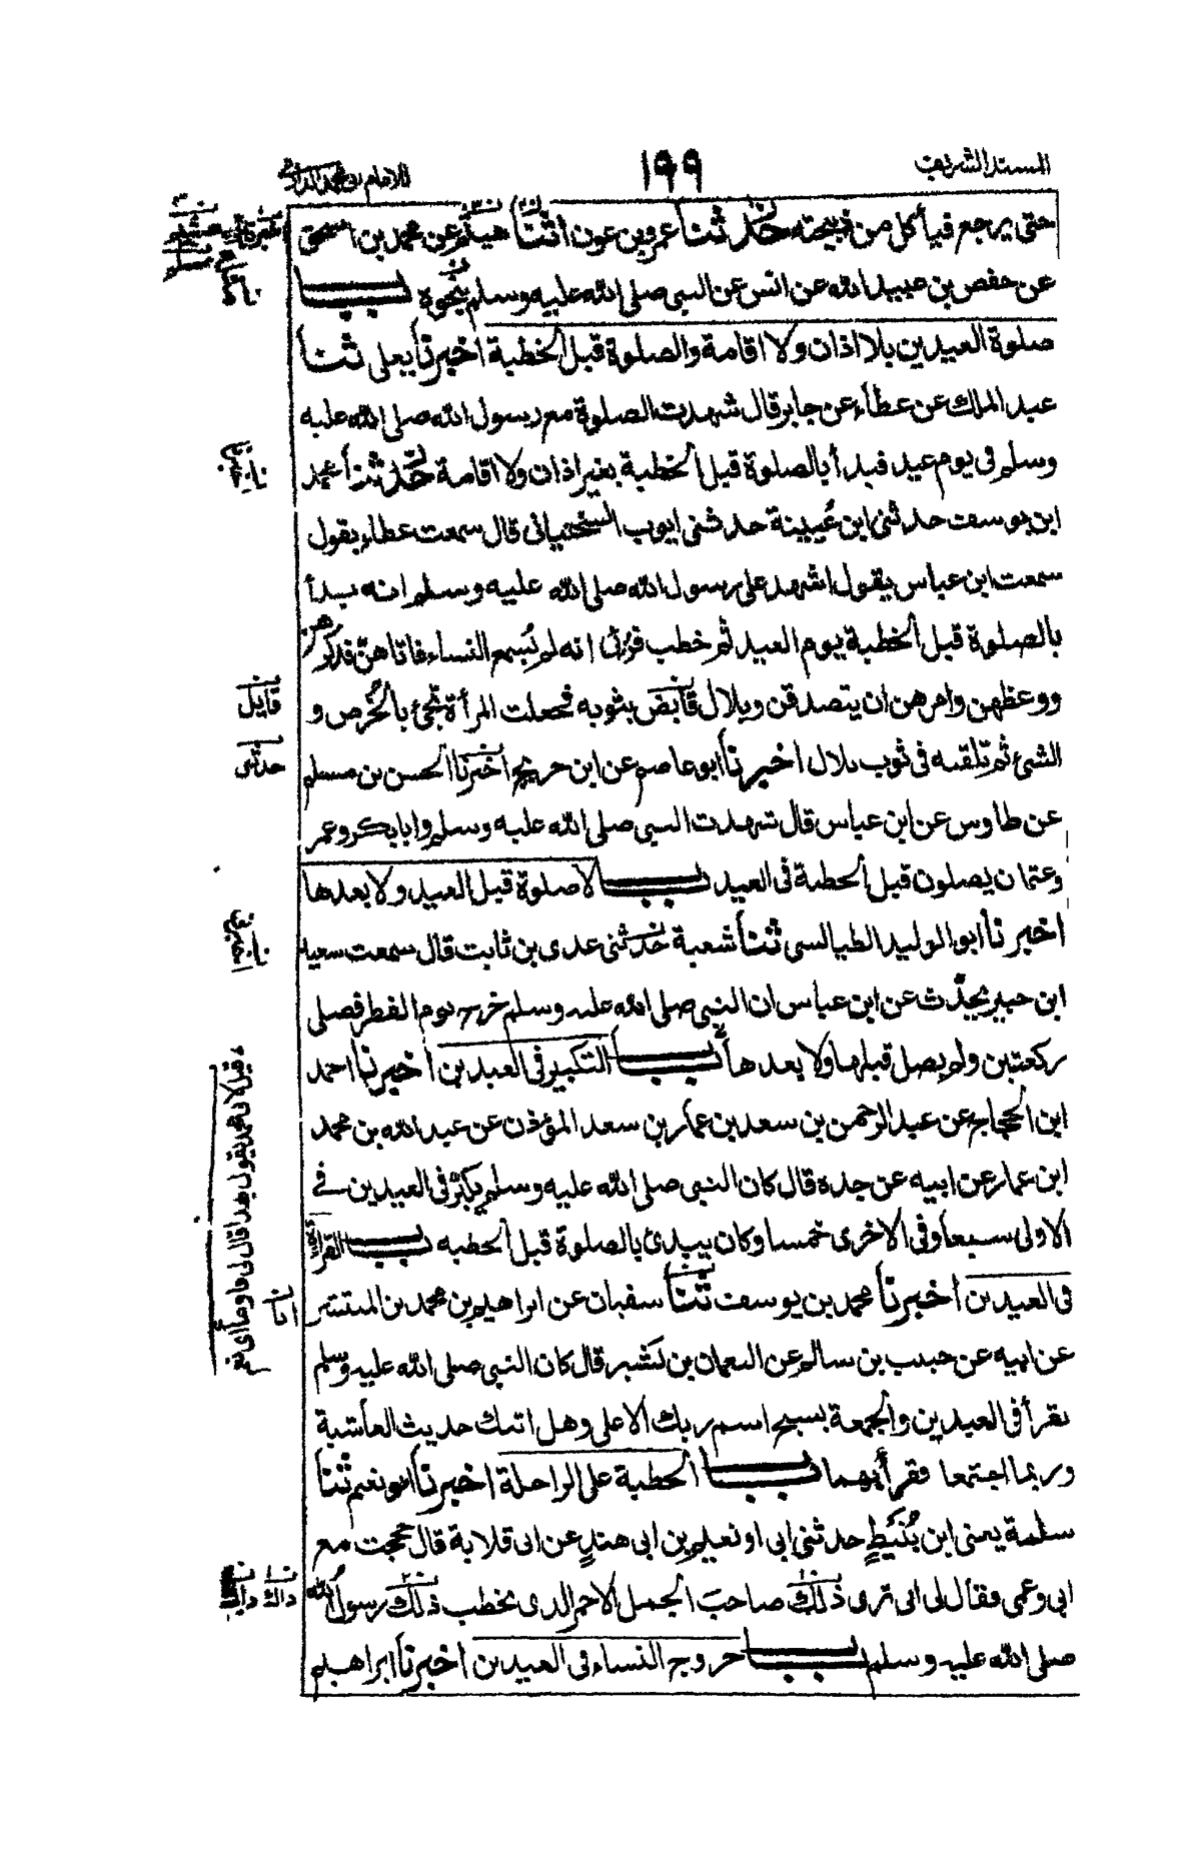 المسند الشريف
١٩٩
للامام محمد الدارمي
حتى يرجع فيأكل من ذبيحته حدثنا عمرو بن عون انثنا هشيم عن محمد بن اسحق
عن حفص بن عبيد الله عن انس عن النبي صلى الله عليه وسلم بنحوه باب
صلوة العيدين بلا اذان ولا اقامة والصلوة قبل الخطبة اخبرنا يعلى ثنا
عبد الملك عن عطاء عن جابر قال شهدت الصلوة مع رسول الله صلى الله عليه
وسلم في يوم عيد فبدأ بالصلوة قبل الخطبة بغير اذان ولا اقامة حدثنا محمد
ابن يوسف حدثني ابن عُيينة حدثني ايوب السختياني قال سمعت عطاء يقول
سمعت ابن عباس يقول اشهد على رسول الله صلى الله عليه وسلم انه بدأ
بالصلوة قبل الخطبة يوم العيد ثم خطب فرُئي انه لم يُسمع النساء فاتاهن فذكرهن
ووعظهن وامرهن ان يتصدقن وبلال قابض بثوبه فجعلت المرأة تجئ بالخُرص و
الشئ ثم تلقيه في ثوب بلال اخبرنا ابو عاصم عن ابن جريج اخبرنا الحسن بن مسلم
عن طاوس عن ابن عباس قال شهدت النبي صلى الله عليه وسلم وابا بكر وعمر
وعثمان يصلون قبل الخطبة في العيد باب لا صلوة قبل العيد ولا بعدها
اخبرنا ابو الوليد الطيالسي ثنا شعبة حدثني عدي بن ثابت قال سمعت سعيد
ابن جبير يحدّث عن ابن عباس ان النبي صلى الله عليه وسلم خرج يوم الفطر فصلى
ركعتين ولم يصل قبلها ولا بعدها باب التكبير في العيدين اخبرنا احمد
ابن الحجاج عن عبد الرحمن بن سعد بن عمار بن سعد المؤذن عن عبد الله بن محمد
ابن عمار عن ابيه عن جده قال كان النبي صلى الله عليه وسلم يكبّر في العيدين في
الاولى سبعا وفي الاخرى خمسا وكان يبدئ بالصلوة قبل الخطبه باب القراءة
في العيدين اخبرنا محمد بن يوسف ثنا سفيان عن ابراهيم بن محمد بن المنتشر
عن ابيه عن حبيب بن سالم عن النعمان بن بشير قال كان النبي صلى الله عليه وسلم
يقرأ في العيدين والجمعة بسبح اسم ربك الاعلى وهل اتىك حديث الغاشية
وربما اجتمعا فقرأ بهما باب الخطبة على الراحلة اخبرنا ابو نعيم ثنا
سلمة يعني ابن نُبَيطٍ حدثني ابي او نعيم بن ابي هندٍ عن ابي قلابة قال حججت مع
ابي وعمي فقال لي ابي ترى ذلك صاحب الجمل الاحمر الذي يخطب ذلك رسول الله
صلى الله عليه وسلم باب خروج النساء في العيدين اخبرنا ابراهيم
قايل
حدثني
انا
ذاك ذاك